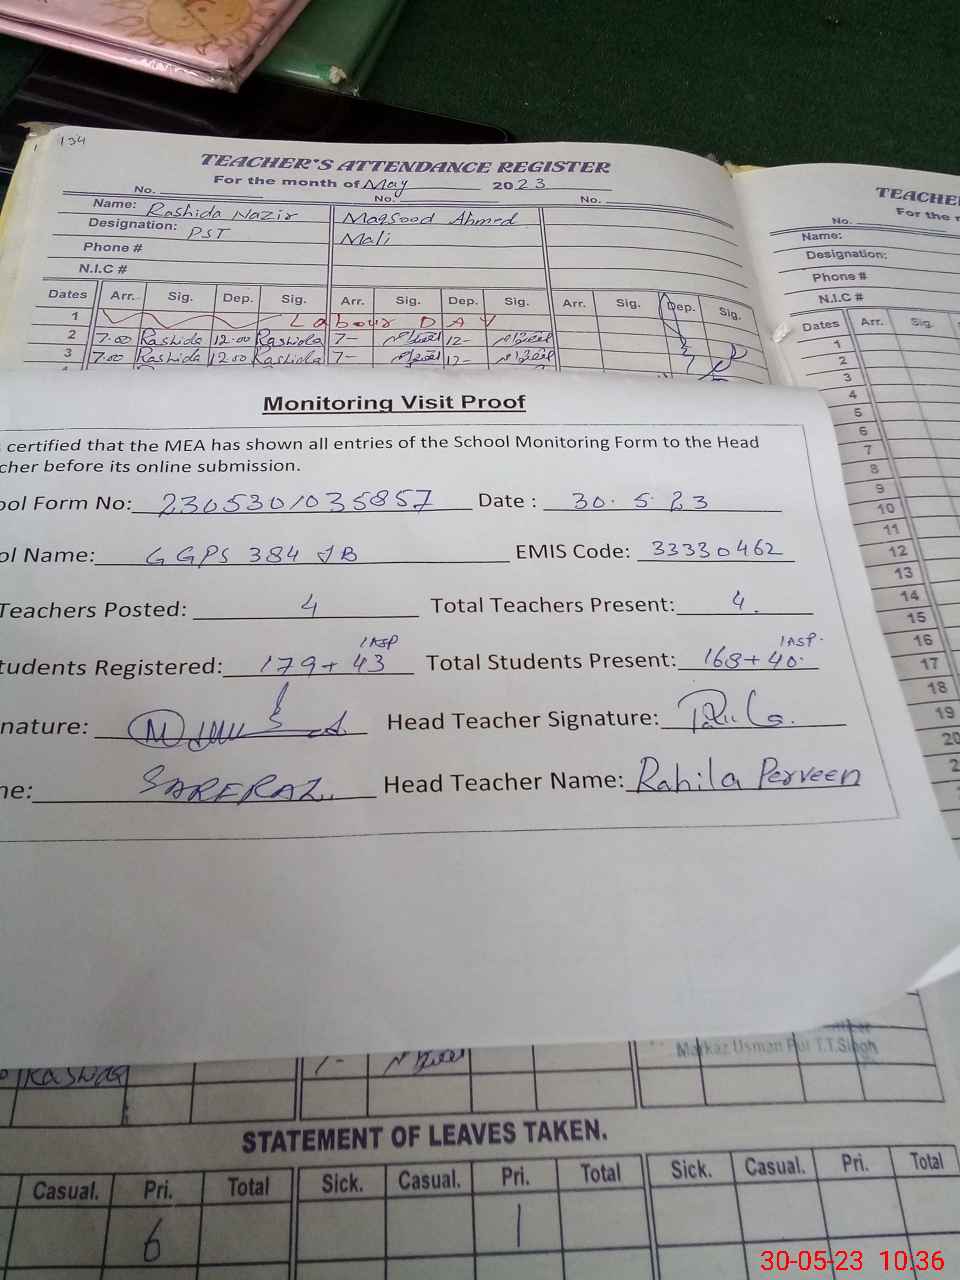 134
TEACHER'S ATTENDANCE REGISTER
For the month of May 2023
No. No. No.
Name: Rashida Nazir Maqsood Ahmed
Designation: PST Mali
Phone #
N.I.C #
Dates Arr. Sig. Dep. Sig. Arr. Sig. Dep. Sig. Arr. Sig. Dep. Sig.
1 Labour DAY
2 7.00 Rashida 12.00 Rashida 7- 12-
3 7.00 Rashida 12.00 Rashida 7- 12-
TEACHE
For the
No.
Name:
Designation:
Phone #
N.I.C #
Dates Arr. Sig.
1
2
3
4
5
6
7
8
9
10
11
12
13
14
15
16
17
18
19
20
2
Monitoring Visit Proof
certified that the MEA has shown all entries of the School Monitoring Form to the Head
cher before its online submission.
ool Form No: 2305301035857 Date : 30.5.23
ol Name: GGPS 384 JB EMIS Code: 33330462
Teachers Posted: 4 Total Teachers Present: 4.
tudents Registered: 179+43 1ASP Total Students Present: 168+40. 1ASP.
nature: Head Teacher Signature:
ne: SARFRAZ. Head Teacher Name: Rahila Perveen
Markaz Usman Pur T.T.Singh
STATEMENT OF LEAVES TAKEN.
Casual. Pri. Total Sick. Casual. Pri. Total Sick. Casual. Pri. Total
6 1
30-05-23 10:36